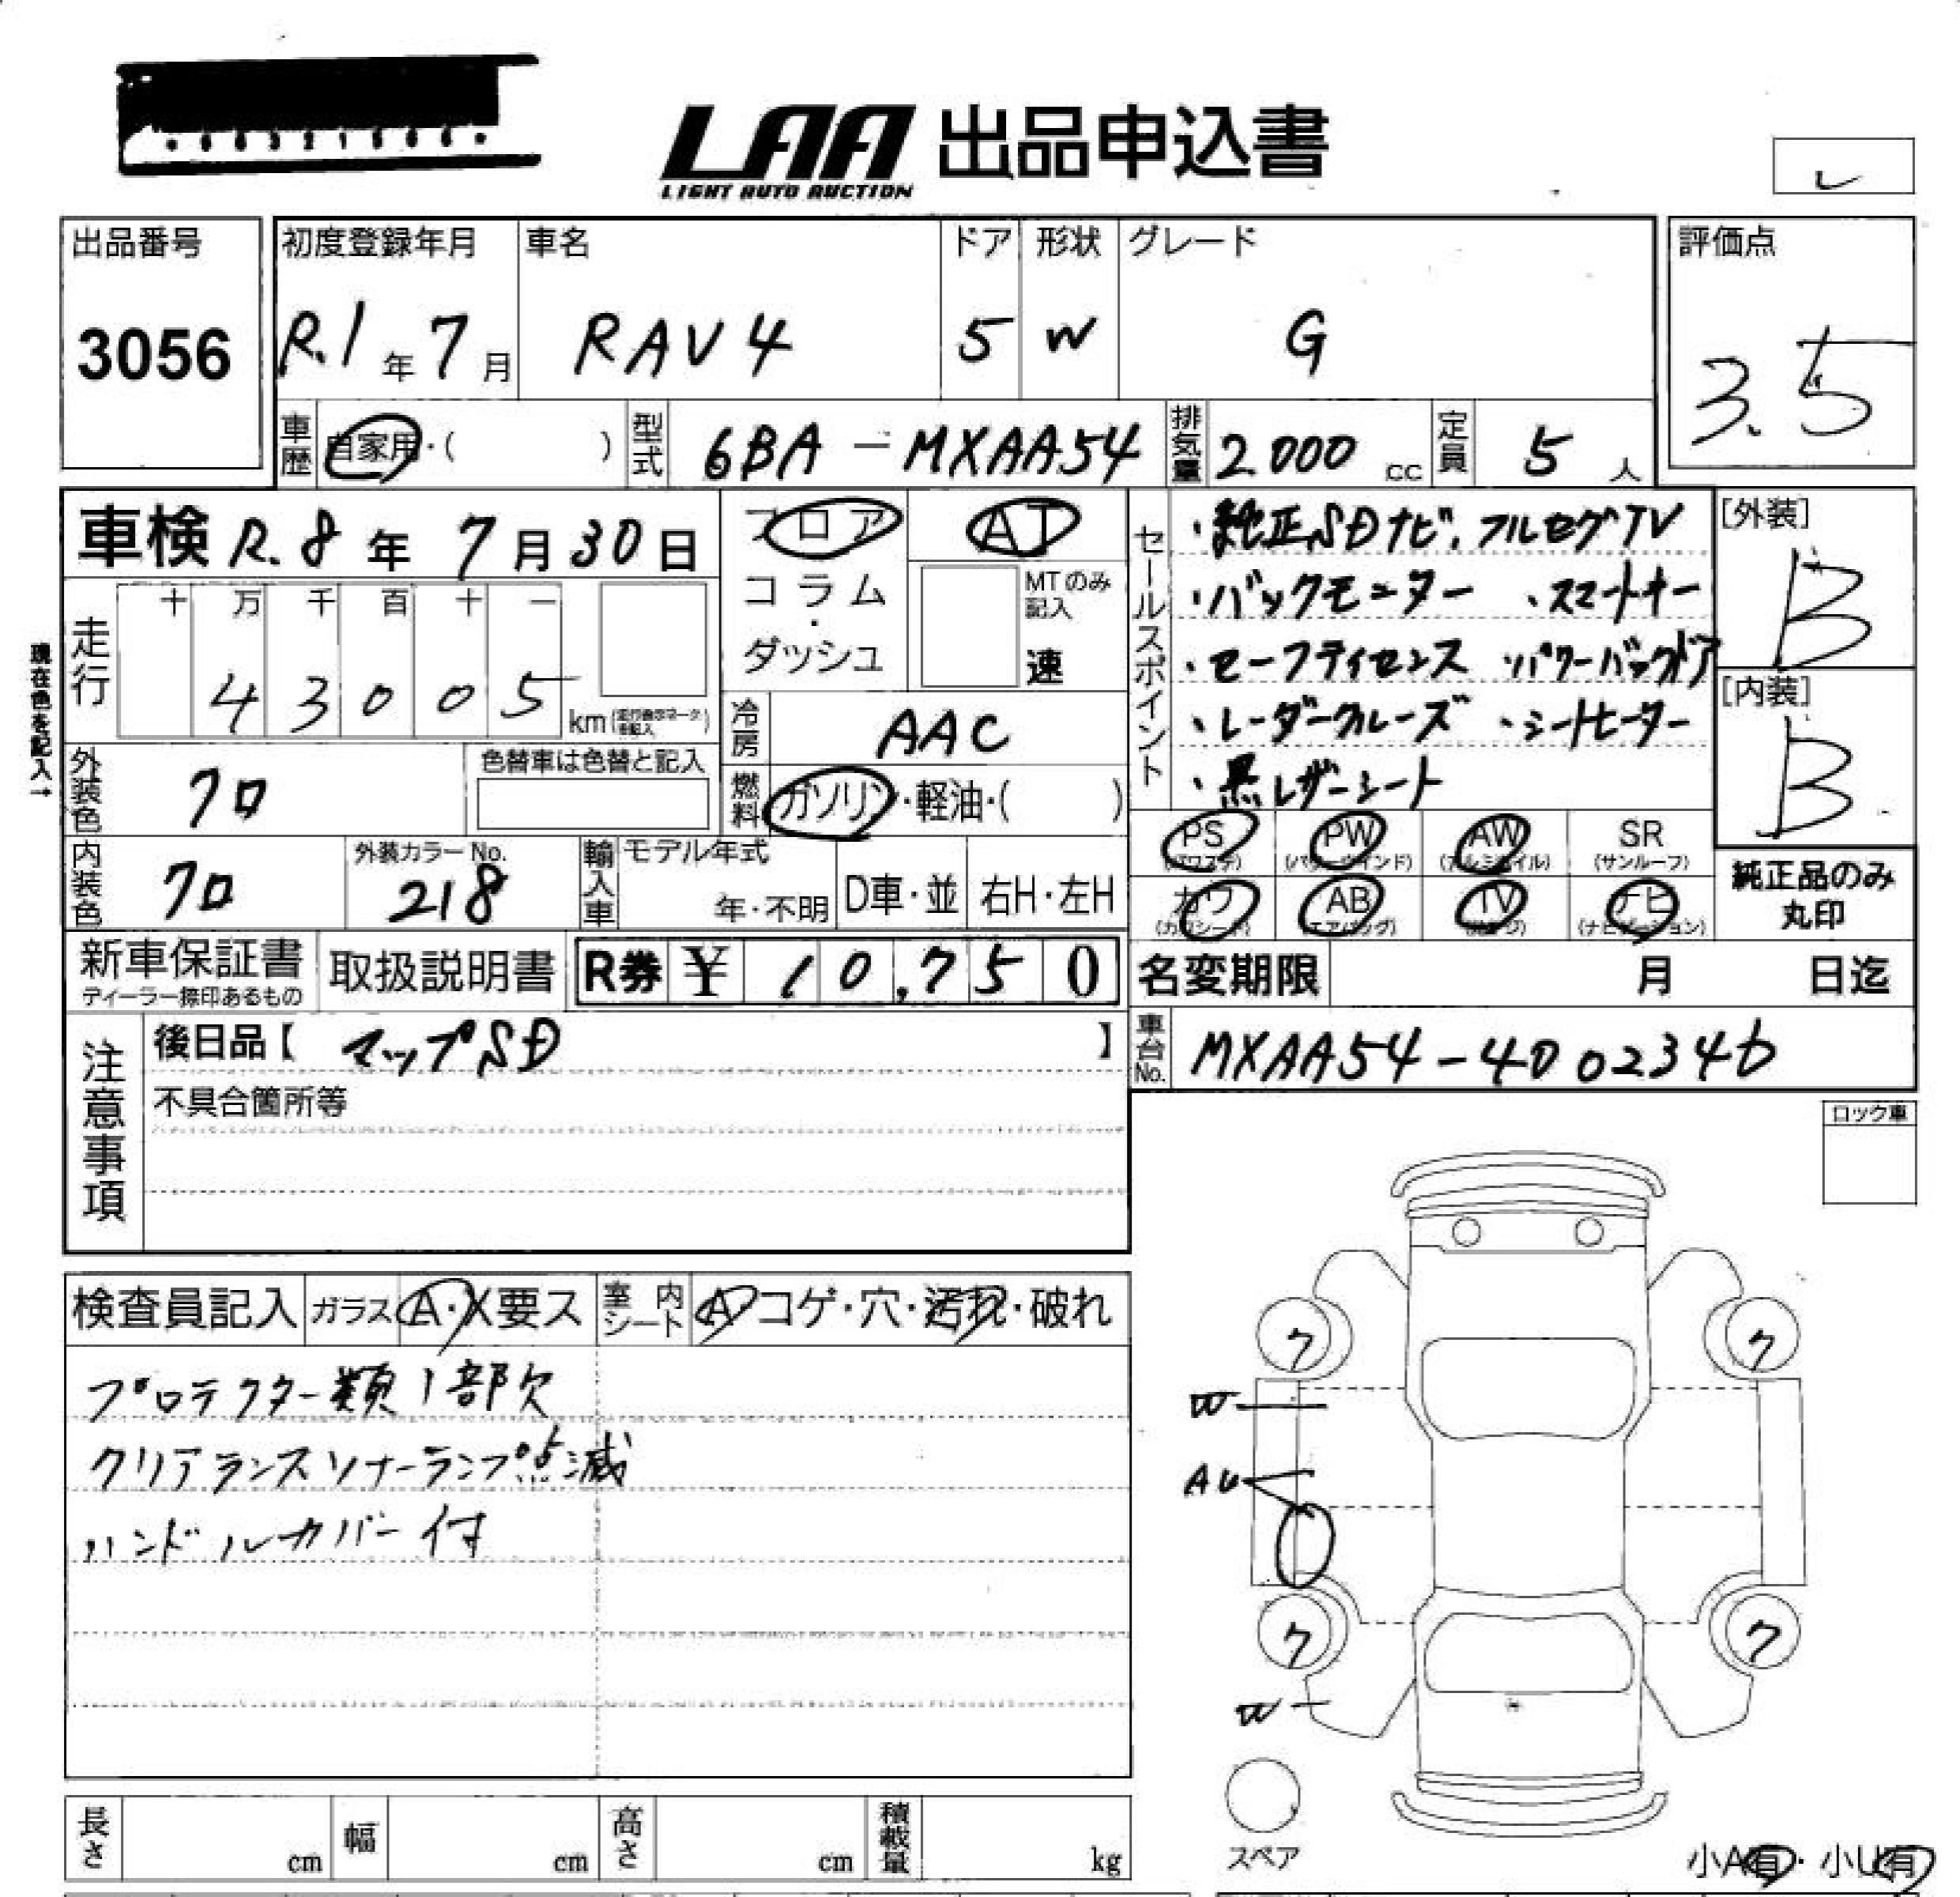 LAA 出品申込書
LIGHT AUTO AUCTION
レ
出品番号
3056
初度登録年月
R.1年7月
車名
RAV4
ドア
5
形状
W
グレード
G
評価点
3.5
車歴 自家用・( )
型式 6BA-MXAA54
排気量 2000 cc
定員 5人
車検 R.8年7月30日
フロア
コラム・
ダッシュ
AT
MTのみ記入
速
セールスポイント
・純正SDナビ、フルセグTV
・バックモニター ・スマートキー
・セーフティセンス ・パワーバックドア
・レーダークルーズ ・シートヒーター
・黒レザーシート
[外装]
B
[内装]
B
現在色を記入→
走行
十 万 千 百 十 一
43005 km
冷房 AAC
外装色 クロ
色替車は色替と記入
燃料 ガソリン・軽油・( )
内装色 クロ
外装カラーNo.
218
輸入車
モデル年式
年・不明
D車・並
右H・左H
PS (パワステ)
PW (パワーウインド)
AW (アルミホイル)
SR (サンルーフ)
カワ (カワシート)
AB (エアバッグ)
TV
ナビ (ナビゲーション)
純正品のみ
丸印
新車保証書
ディーラー捺印あるもの
取扱説明書
R券 ¥ 10,750
名変期限 月 日迄
注意事項
後日品【 マップSD 】
不具合箇所等
車台No. MXAA54-4002346
ロック車
検査員記入
ガラス A・X要ス
室内シート A コゲ・穴・汚れ・破れ
プロテクター類1部欠
クリアランスソナーランプ点滅
ハンドルカバー付
ク
ク
W
AU
ク
ク
W
スペア
小A有・小U有
長さ cm
幅 cm
高さ cm
積載量 kg